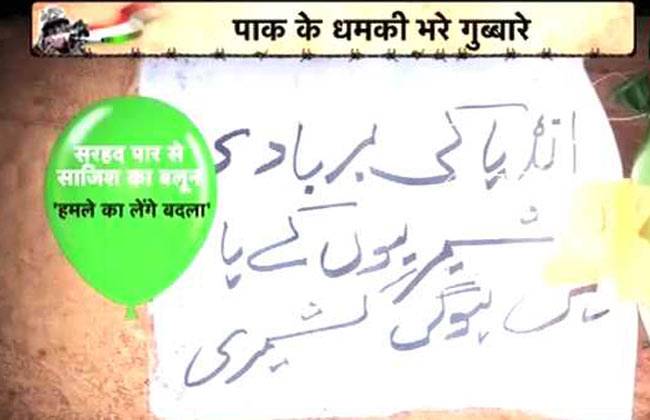 पाक के धमकी भरे गुब्बारे
सरहद पार से
साजिश का बलून
'हमले का लेंगे बदला'
انڈیا کی بربادی
شمیریوں کے
ہوگی کشمیری